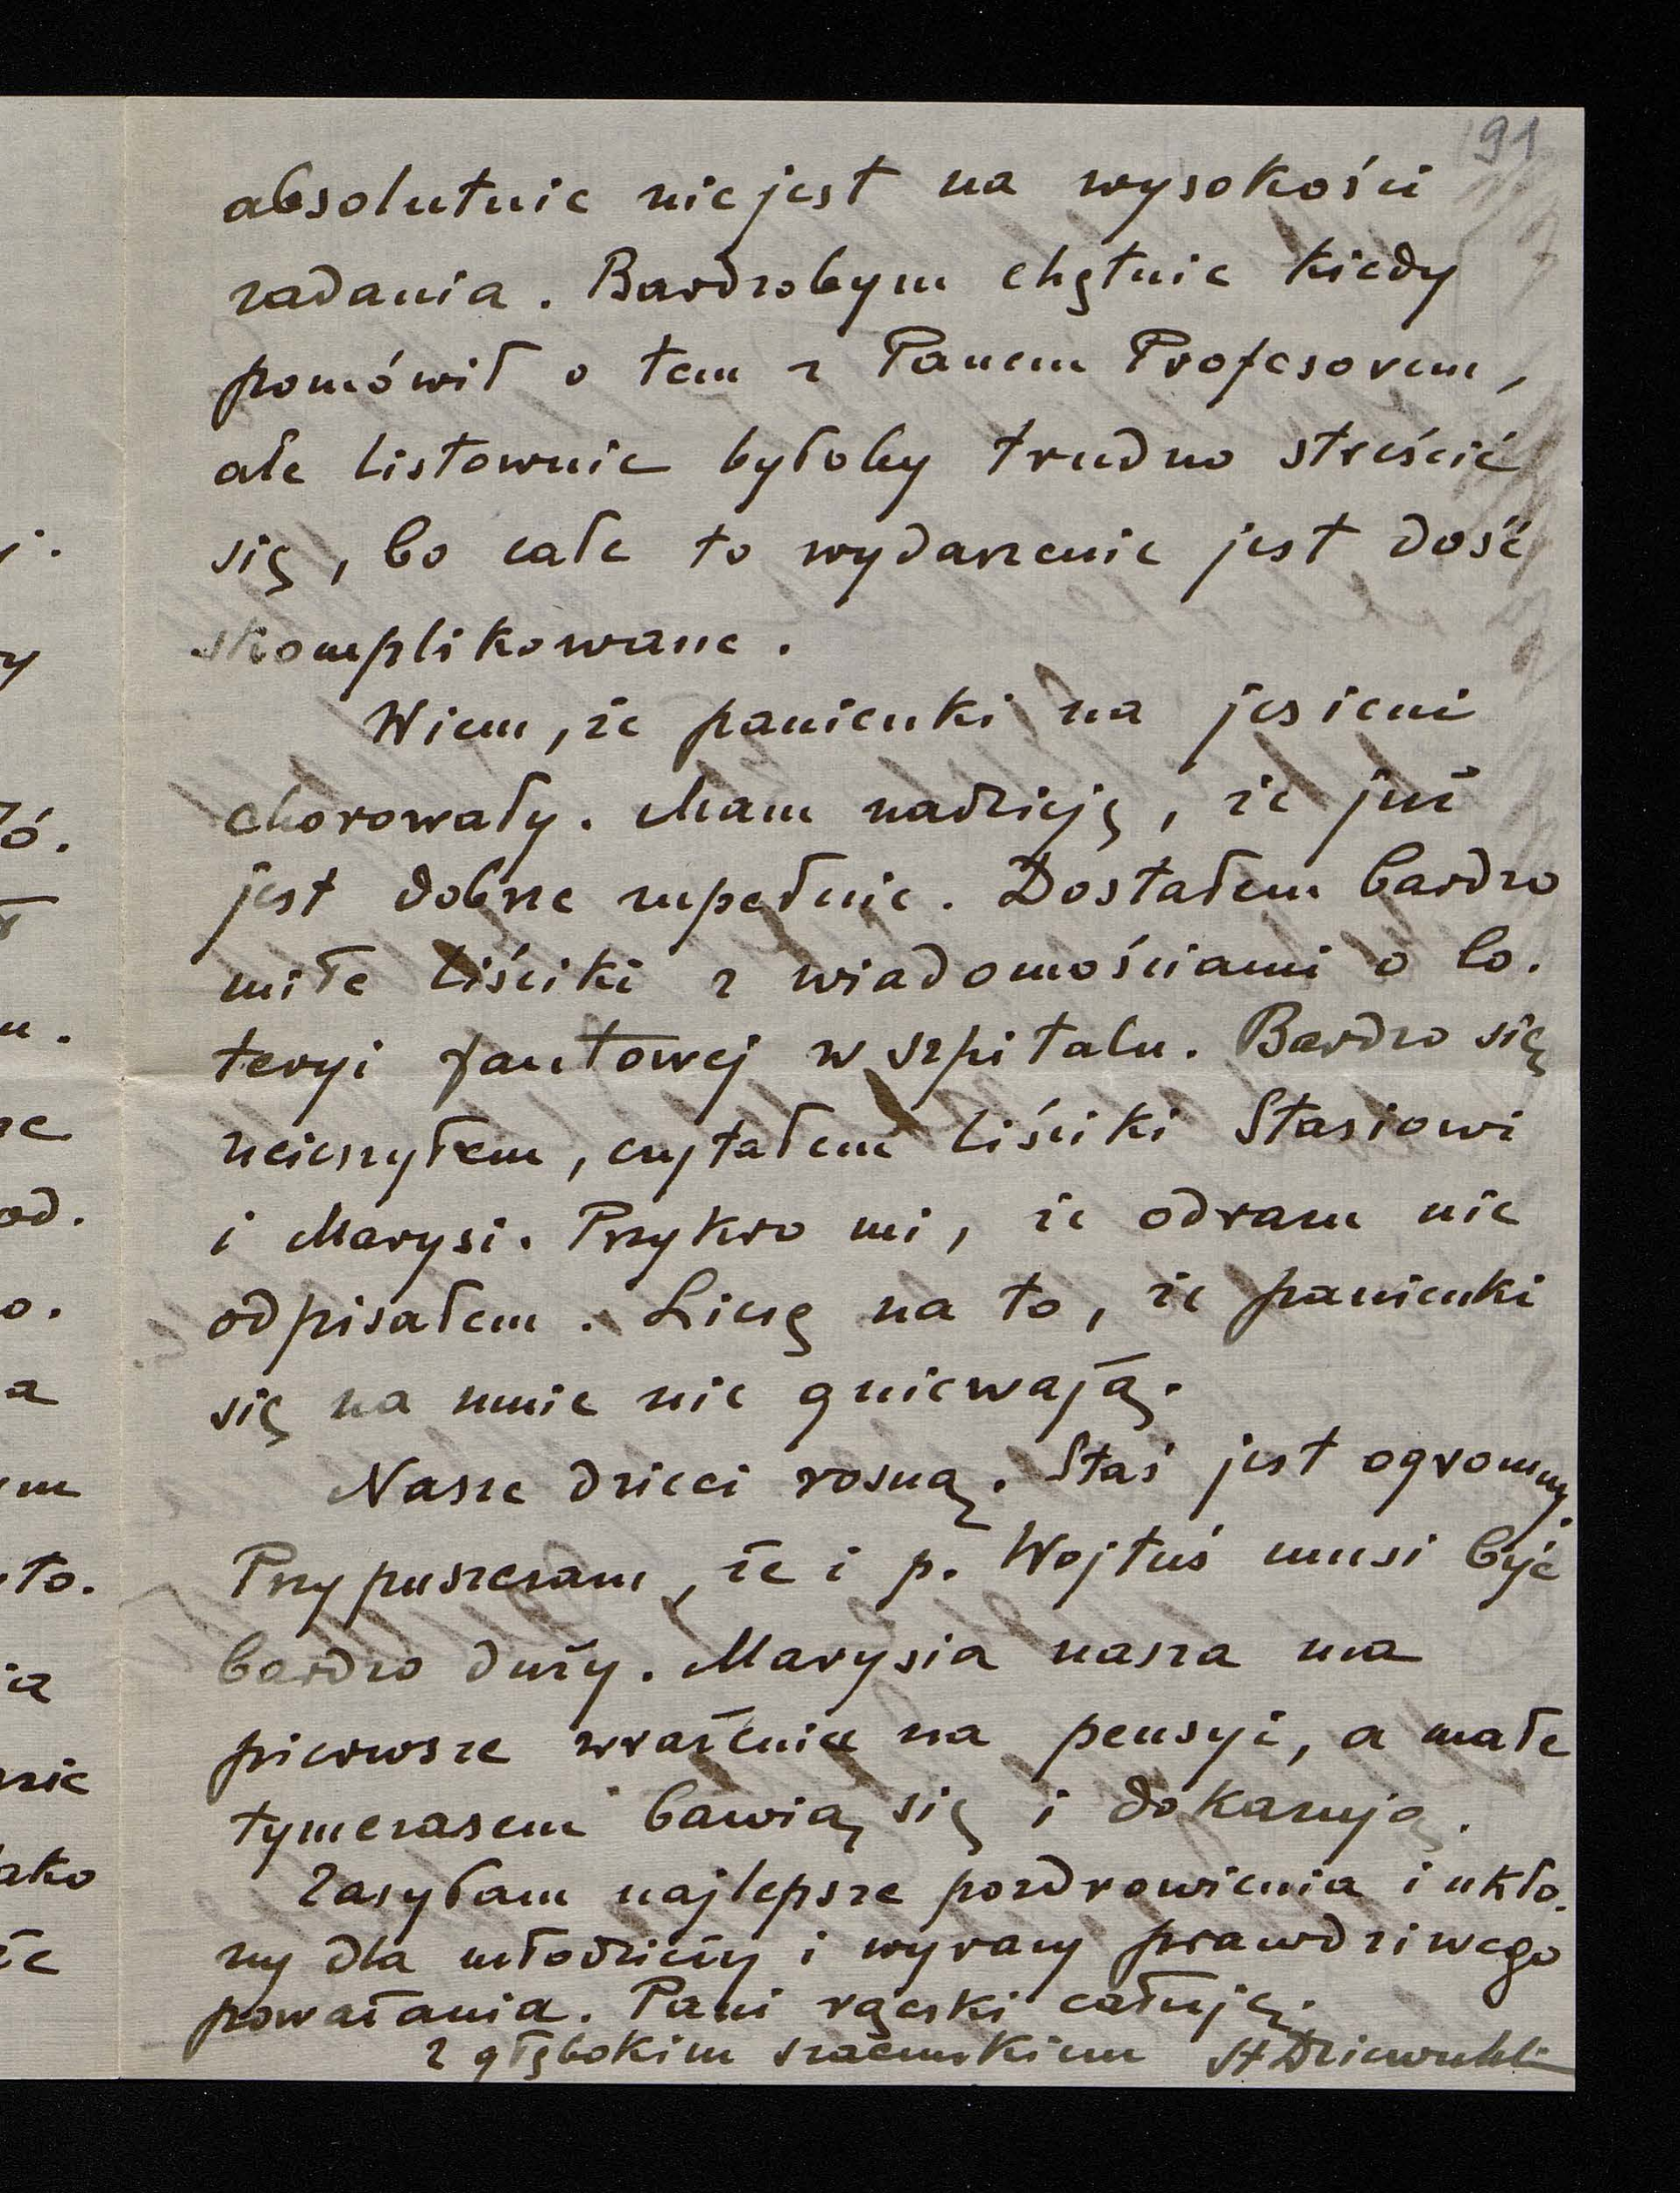 91
absolutnie nie jest na wysokości
zadania. Bardzobym chętnie kiedy
pomówił o tem z Panem Profesorem,
ale listownie byłoby trudno streścić
się, bo całe to wydarzenie jest dość
skomplikowane.
Wiem, że panienki na jesieni
chorowały. Mam nadzieję, że już
jest dobrze zupełnie. Dostałem bardzo
miłe liściki z wiadomościami o lo.
teryi fantowej w szpitalu. Bardzo się
ucieszyłem, czytałem liściki Stasiowi
i Marysi. Przykro mi, że odrazu nie
odpisałem. Liczę na to, że panienki
się na mnie nie gniewają.
Nasze dzieci rosną. Staś jest ogromny.
Przypuszczam, że i p. Wojtuś musi być
bardzo duży. Marysia nasza ma
pierwsze wrażenie na pensyi, a małe
tymczasem bawią się i dokazują.
Zasyłam najlepsze pozdrowienia i ukło.
ny dla młodzieży i wyrazy prawdziwego
poważania. Pani rączki całuję.
z głębokim szacunkiem St Dziewulski